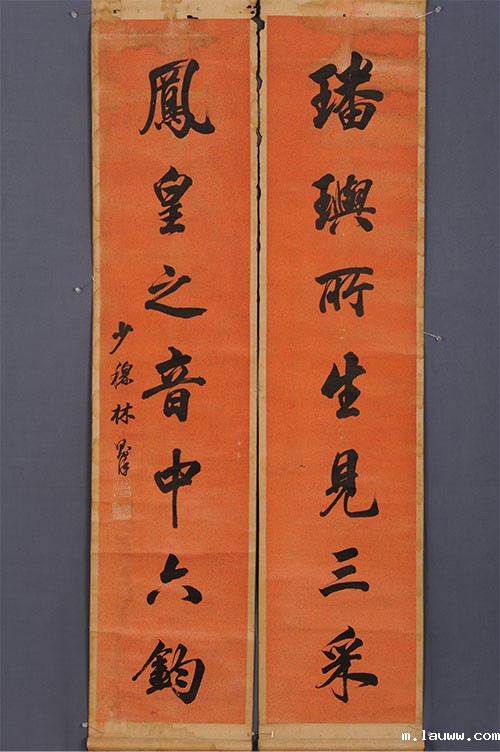 璠璵所生見三采
鳳皇之音中六鈞
少穆林則徐
m.lauww.com